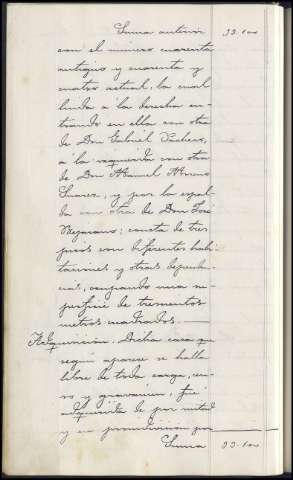 Suma anterior 33.100
con el número cuarenta
antiguo y cuarenta y
cuatro actual, la cual
linda a la derecha en-
trando en ella con otra
de Don Gabriel
a la izquierda con otra
de Don Manuel Moreno
Suarez, y por la espal-
da con otra de Don José
Bejarano; consta de tres
pisos con diferentes habi-
taciones y otras dependen-
cias, ocupando una su-
perficie de trescientos
metros cuadrados.
Adquisición; Dicha casa que
según aparece se halla
libre de toda carga, cen-
so y gravamen, fué
adquirida de por mitad
y en proindivision por
Suma 33.100